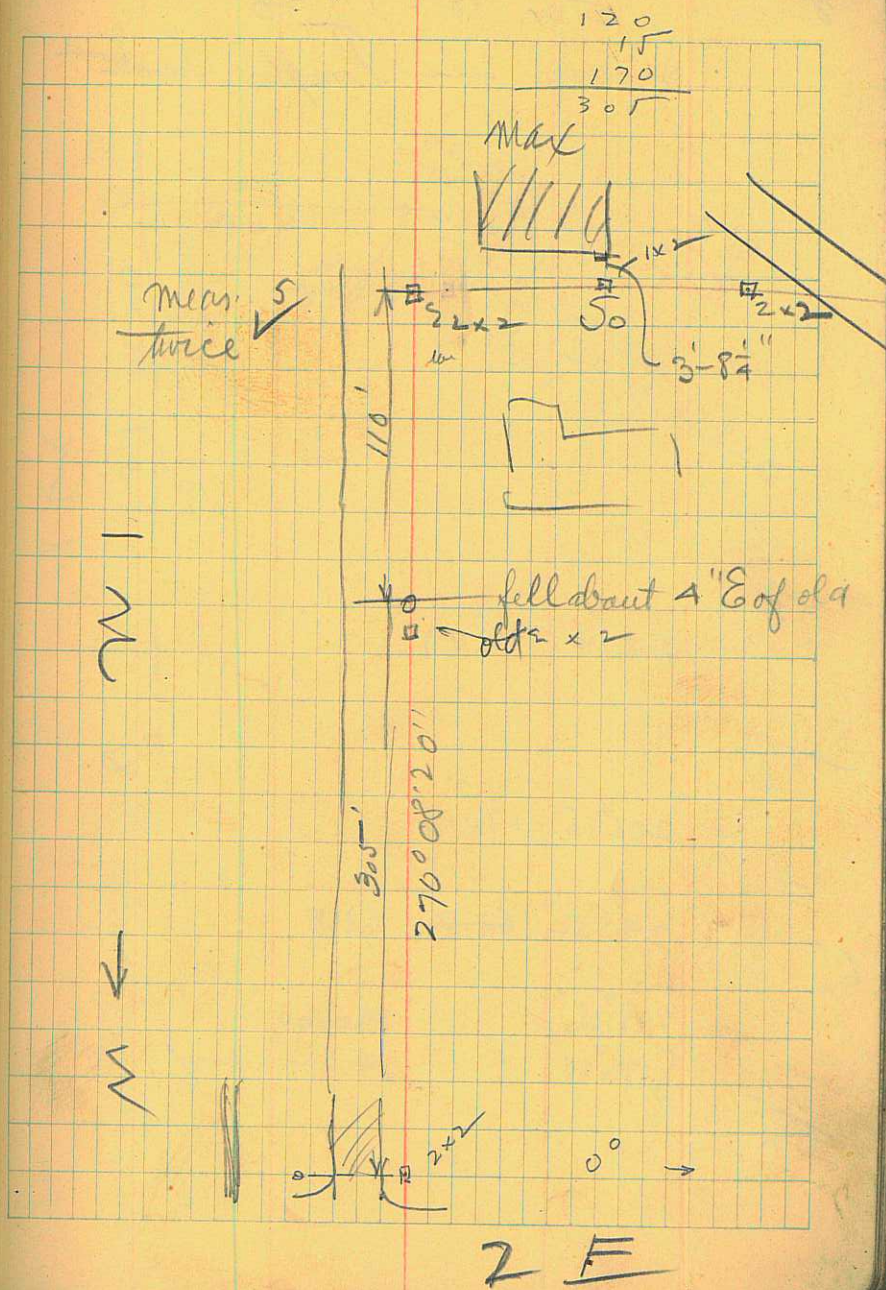 120
15
170
305
Max
1x2
meas. 5
twice
2x2
50
2x2
3'-8¼"
110'
fell about 4"E of old
old 2 x 2
270°08'20"
305'
2x2
0°
2 E